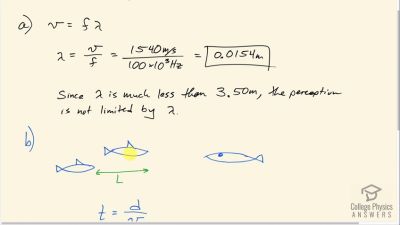 a) v = f λ
λ = v/f = 1540 m/s / 100×10³ Hz = 0.0154 m
Since λ is much less than 3.50m, the perception
is not limited by λ.
b)
L
t = d/v
College Physics
ANSWERS